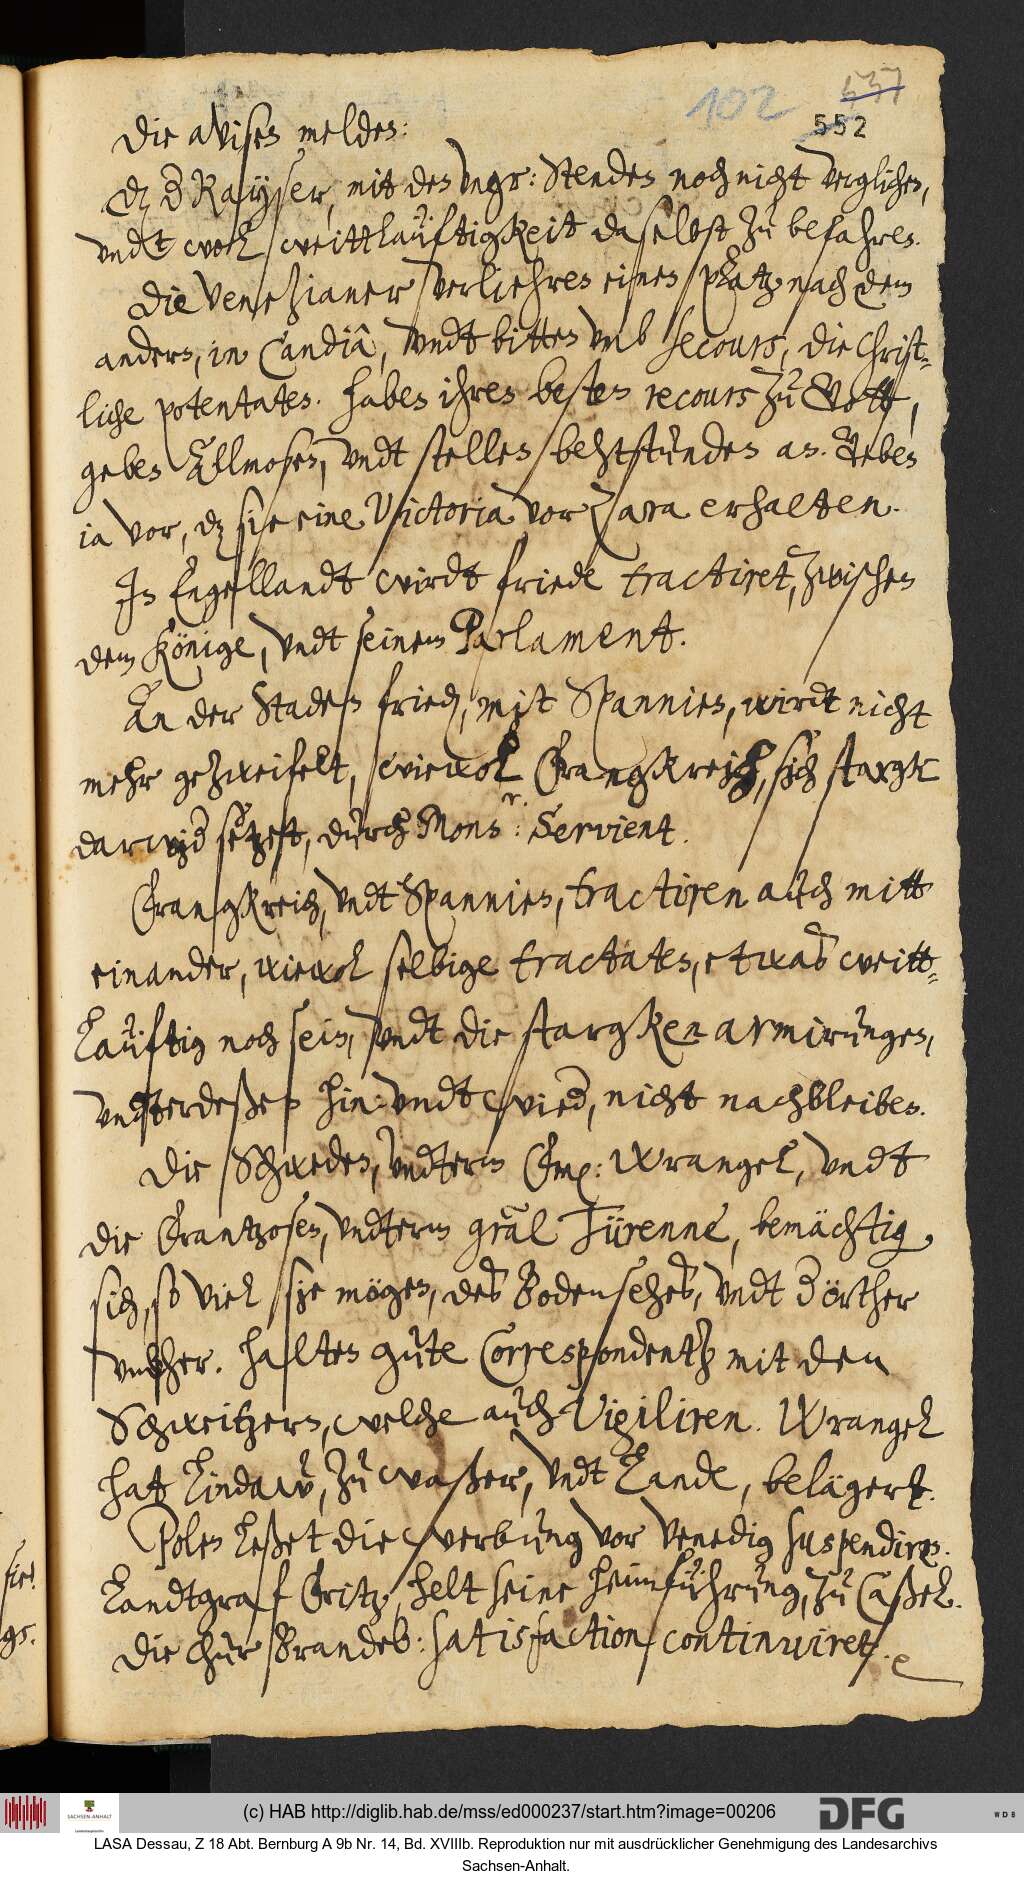 102 537
552
Die avisen melden:
Dz der Kayser, mit den Vngr: Stenden noch nicht verglichen,
vndt wol weittlaüftigkeit daselbst zu befahren.
Die Venezianer verliehren einen platz nach dem
andern, in Candiâ, vndt bitten vmb secours, die Christ-
liche potentaten. haben ihren besten recours zu Gott,
geben Allmosen, vndt stellen behtstunden an. Geben
ia vor, dz sie eine Victoria vor Zara erhalten.
In Engellandt wirdt friede tractiret, zwischen
dem Könige, vndt seinem Parlament.
An der Staden fried, mit Spannien, wirdt nicht
mehr gezweifelt, wiewol Frangkreich, sich stargk
darwider setzet, durch Monsr: Servient.
Frangkreich, vndt Spannien, tractiren auch mitt
einander, wiewol selbige tractaten, etwas weitt-
laüftig noch sein, vndt die stargken armirungen,
vndterdeßen hin: vndt wieder, nicht nachbleiben.
Die Schweden, vndterm Eme: Wrangel, vndt
die Frantzosen, vndterm gräl Türenne, bemächtigen
sich, so viel sie mögen, des Bodensehes, vndt der örther
vmbher. halten gute Correspondentz mit den
Schweitzern, welche auch vigiliren. Wrangel
hat Lindaw, zu waßer, vndt Lande, belägert.
Polen leßet die werbung vor Venedig suspendiren.
Landtgraf Fritz, helt seine heimführung, zu Caßel.
Die ChurBrandeb: satisfaction continuiret.
sie!
gs.
(c) HAB http://diglib.hab.de/mss/ed000237/start.htm?image=00206
SACHSEN-ANHALT
DFG
WDB
LASA Dessau, Z 18 Abt. Bernburg A 9b Nr. 14, Bd. XVIIIb. Reproduktion nur mit ausdrücklicher Genehmigung des Landesarchivs
Sachsen-Anhalt.